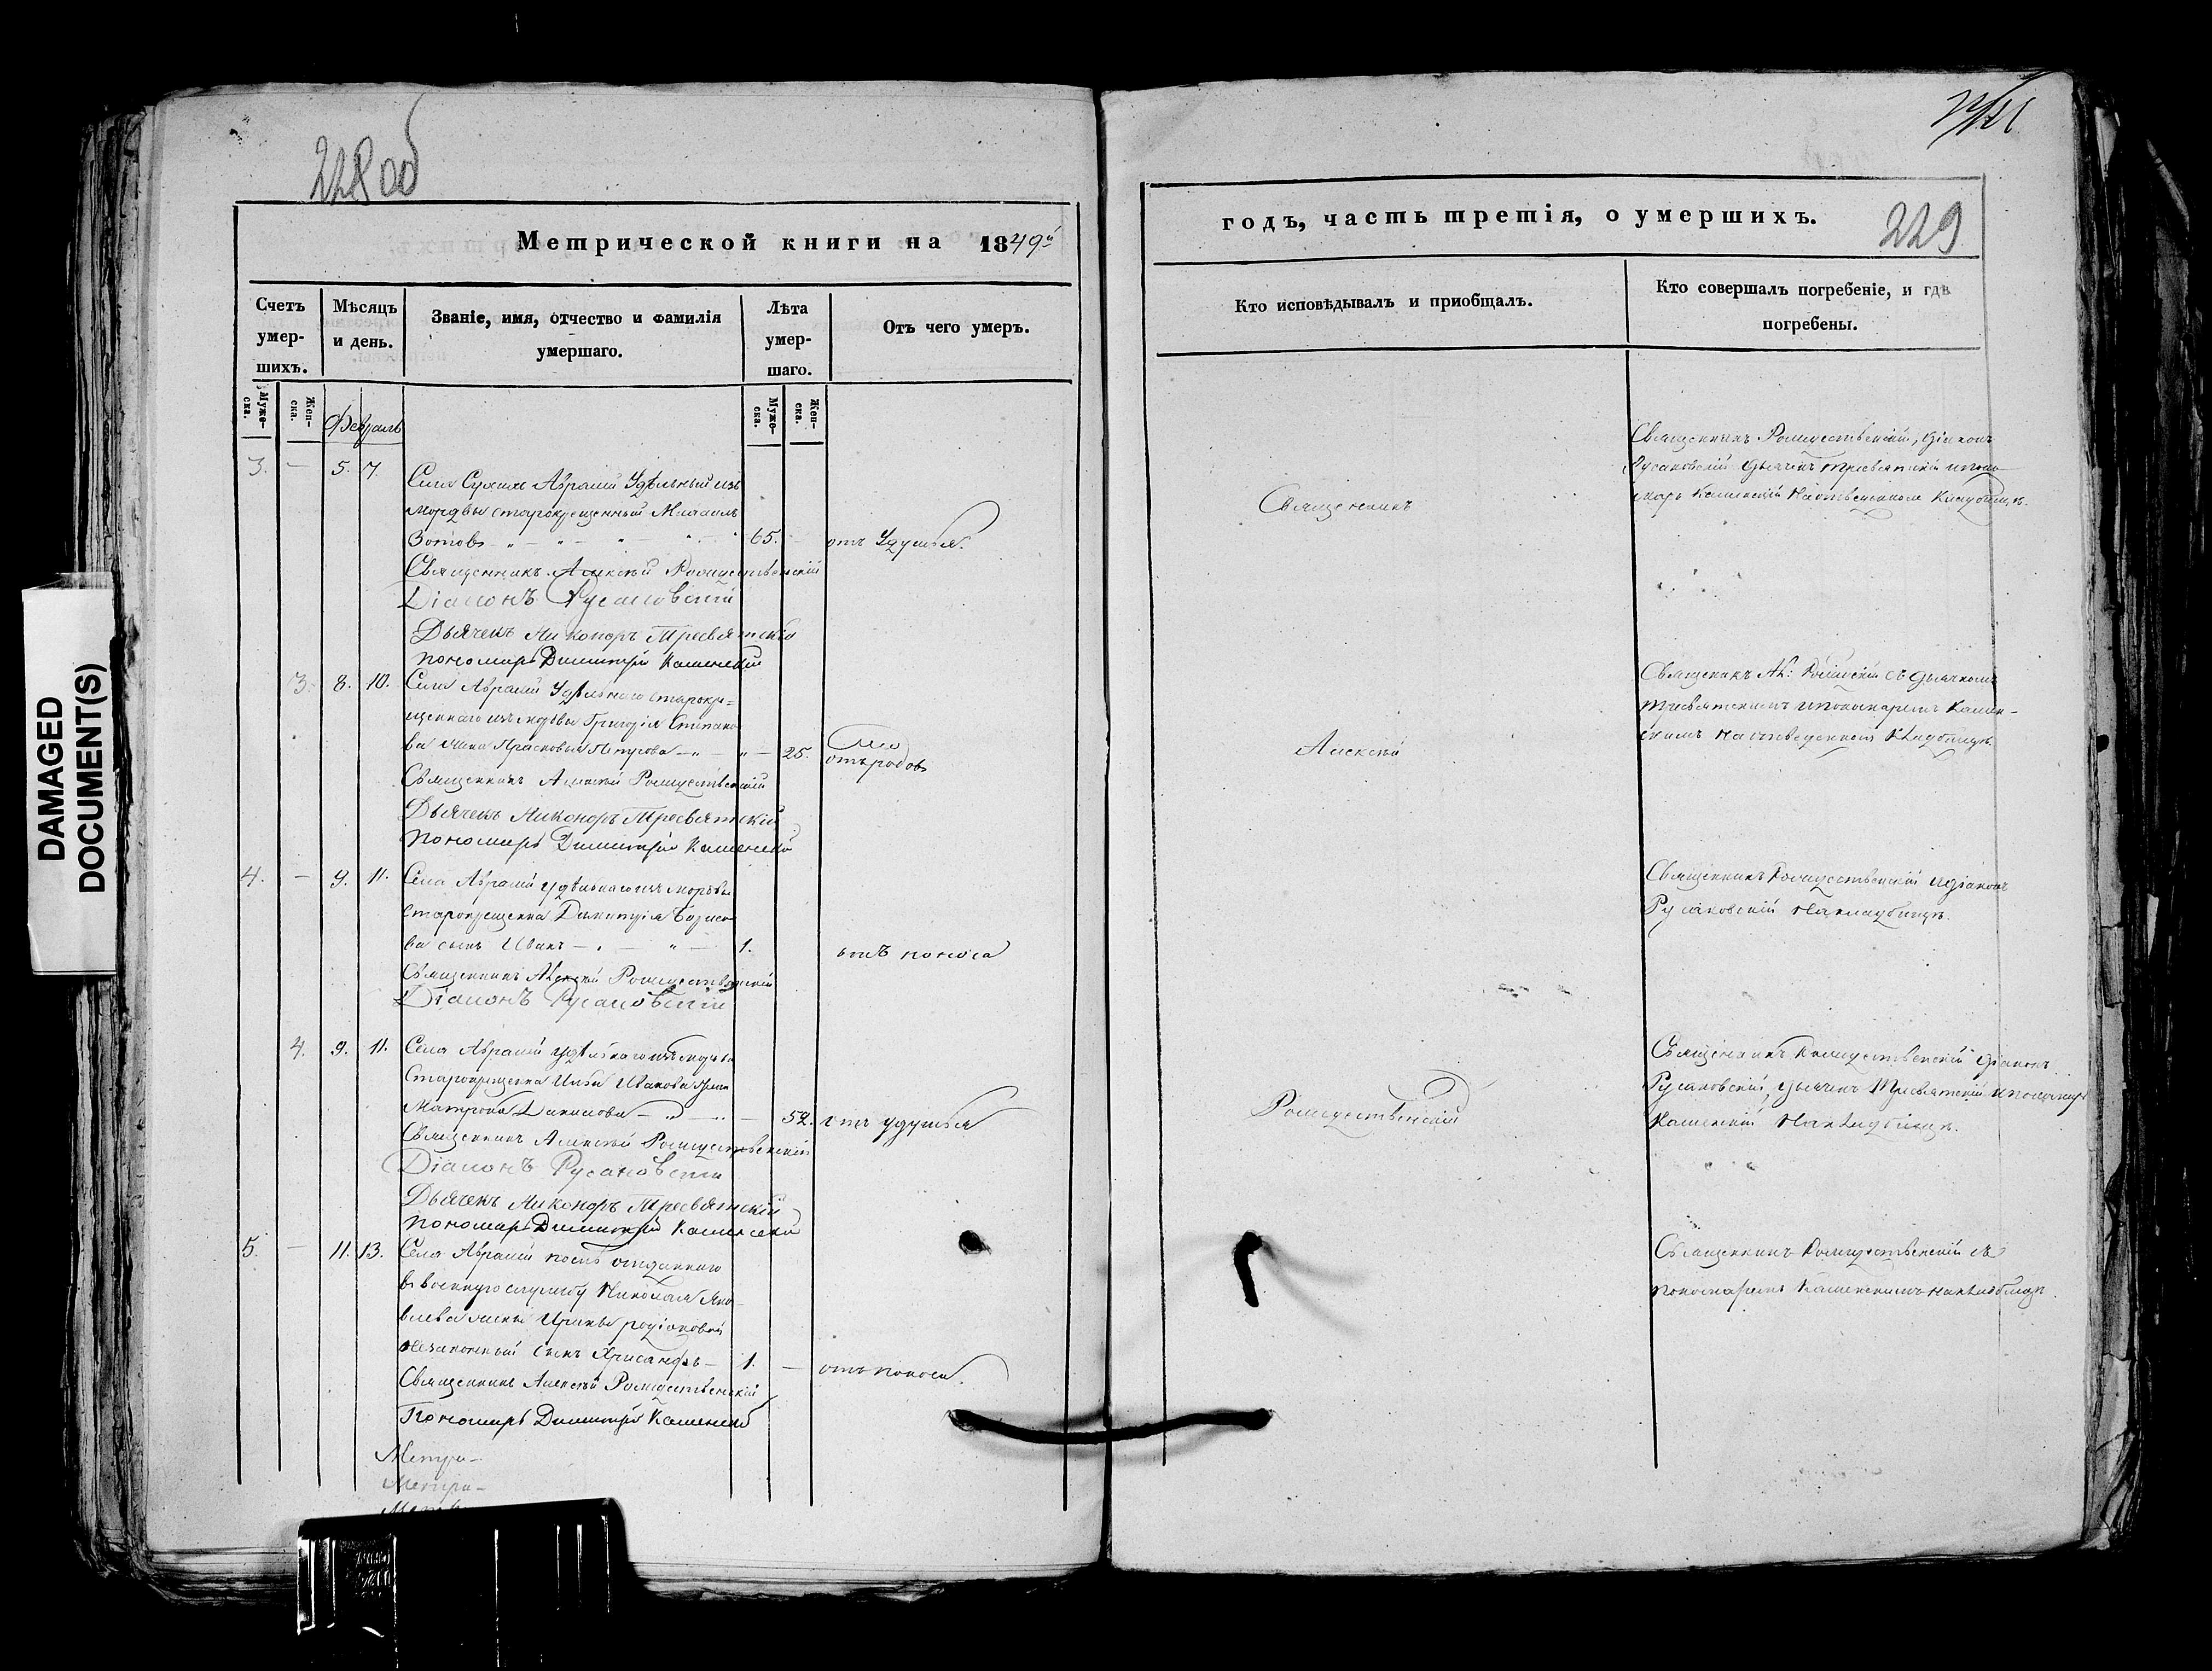 228 об
229
DAMAGED
DOCUMENT(S)
Метрической книги на 1849й
годъ, часть третія, о умершихъ.
Счетъ умер-шихъ.
Мѣсяцъ и день.
Званіе, имя, отчество и фамилія умершаго.
Лѣта умер-шаго.
Отъ чего умеръ.
Кто исповѣдывалъ и приобщалъ.
Кто совершалъ погребеніе, и гдѣ погребены.
Муже-ска.
Жен-ска.
Февраль
Муже-ска.
Жен-ска.
3. — 5. 7.
Села Сухихъ Авралей Удѣльный изъ
мордвы старокрещенный
Зотовъ 65. отъ Удушья.
Священникъ Алексѣй Рождественскій
Діаконъ Русановскій
Дьячекъ Никоноръ Тресвятскій
пономарь Димитрій Каменскій
Священникъ
Священникъ Рождественскій, діаконъ
Русановскій дьячекъ Тресвятскій и поно-
марь Каменскій На отведенномъ Кладбищѣ.
3. 8. 10.
Села Авралей Удѣльнаго старокре-
щеннаго изъ мордвы Григорія Степано-
ва жена Прасковья 25.
отъ родовъ
Священникъ Алексѣй Рождественскій
Дьячекъ Никоноръ Тресвятскій
пономарь Димитрій Каменскій
Алексѣй
Священникъ Ал: съ дьячкомъ
Тресвятскимъ и пономаремъ Камен-
скимъ На отведенномъ Кладбищѣ.
4. — 9. 11.
Села Авралей удѣльнаго изъ мордвы
старокрещенна Димитрія Борисо-
ва сынъ Иванъ 1. отъ поноса
Священникъ Алексѣй Рождественскій
Діаконъ Русановскій
Священникъ Рождественскій и діаконъ
Русановскій На кладбищѣ.
4. 9. 11.
Села Авралей удѣльнаго изъ мордвы
Старокрещенна Ильи Иванова жена
Матрона 52. отъ удушья
Священникъ Алексѣй Рождественскій
Діаконъ Русановскій
Дьячекъ Никоноръ Тресвятскій
пономарь Димитрій Каменскій
Рождественскій
Священникъ Рождественскій діаконъ
Русановскій, дьячекъ Тресвятскій и пономарь
Каменскій На кладбищѣ.
5. — 11. 13.
Села Авралей послѣ отданнаго
въ военную службу Николая Яко-
влева жены Ирины родіоновой
незаконный сынъ Хрисанфъ — 1. — отъ поноса.
Священникъ Алексѣй Рождественскій
Пономарь Димитрій Каменскій
Священникъ Рождественскій съ
пономаремъ Каменскимъ на кладбищѣ.
Метри-
Метри-